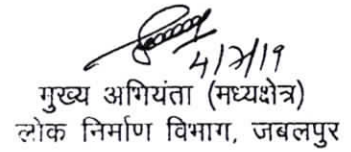 4/7/19
मुख्य अभियंता (मध्यक्षेत्र)
लोक निर्माण विभाग, जबलपुर